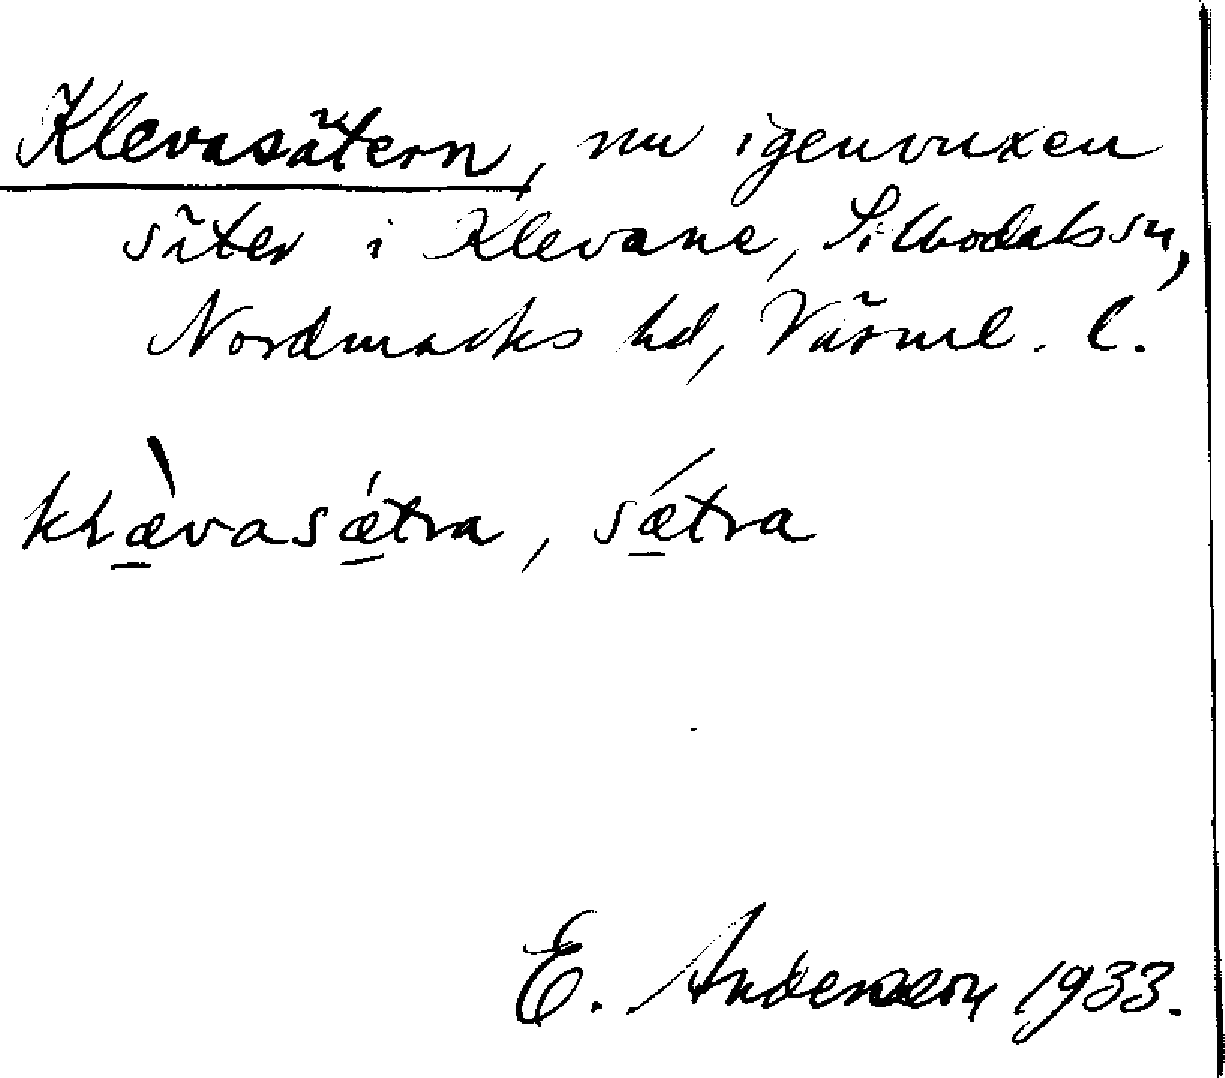 Klevasätern, nu igenvuxen
säter i Klevane, Silbodals sn,
Nordmarks hd, Värml. l.
klæ̀vasǽtra, sǽtra
E. Andersson 1933.